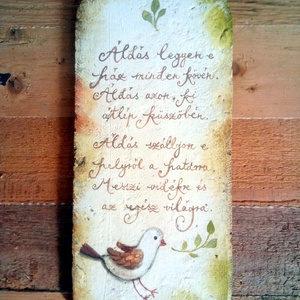 Áldás legyen e
ház minden kövén.
Áldás azon, ki
átlép küszöbén.
Áldás szálljon e
helyről a határra,
Messzi vidékre és
az egész világra.